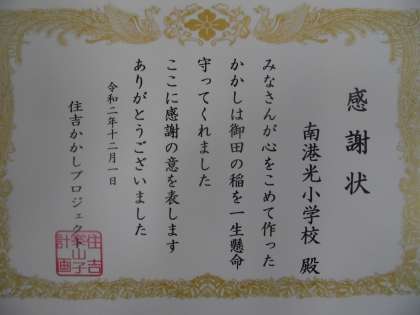 感謝状
南港光小学校 殿
みなさんが心をこめて作った
かかしは御田の稲を一生懸命
守ってくれました
ここに感謝の意を表します
ありがとうございました
令和二年十二月一日
住吉かかしプロジェクト
住吉
案山子
計画